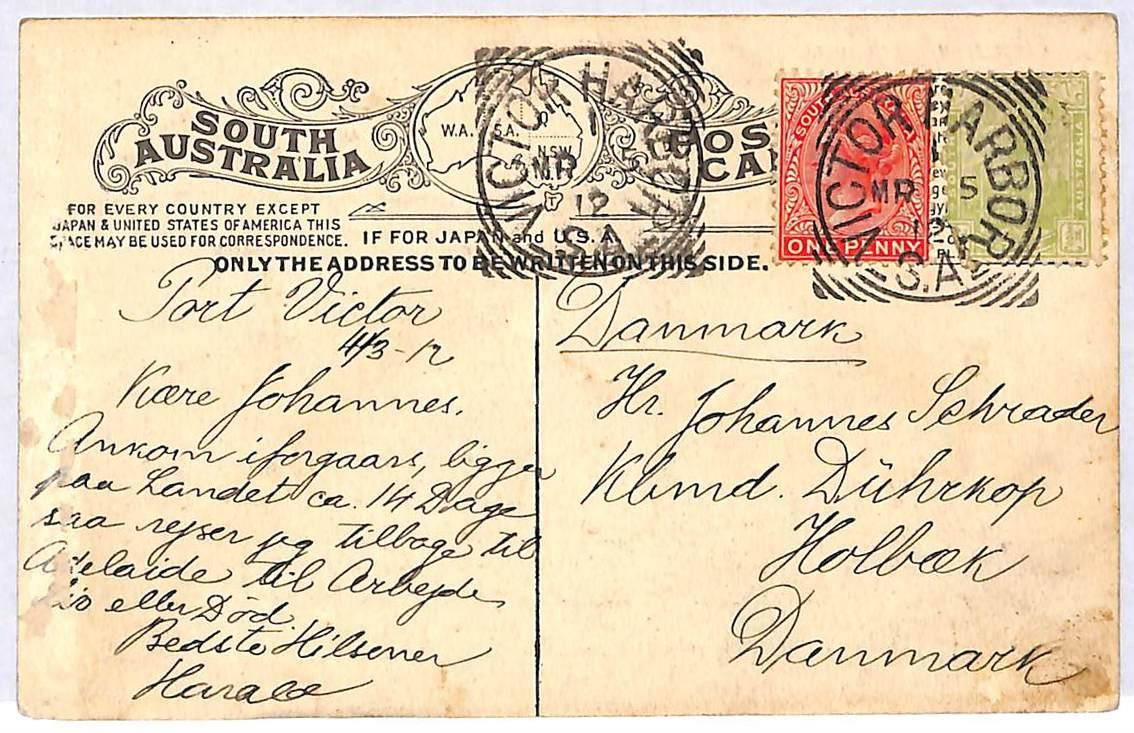 SOUTH
AUSTRALIA
W.A.
S.A.
NSW
POST
CARD
FOR EVERY COUNTRY EXCEPT
JAPAN & UNITED STATES OF AMERICA THIS
SPACE MAY BE USED FOR CORRESPONDENCE.
IF FOR JAPAN and U.S.A.
ONLY THE ADDRESS TO BE WRITTEN ON THIS SIDE.
VICTOR HARBOR
MR
12
S.A
SOUTH AUSTRALIA
ONE PENNY
AUSTRALIA
VICTOR HARBOR
MR 5
12
S.A
Port Victor
4/3-12
Kære Johannes.
Ankom iforgaars, ligger
paa Landet ca. 14 Dage
saa rejser jeg tilbage til
Adelaide til Arbejde
Liv eller Død.
Bedste Hilsener
Harald
Danmark
Hr. Johannes Schrader
Kbmd. Dührkop
Holbæk
Danmark